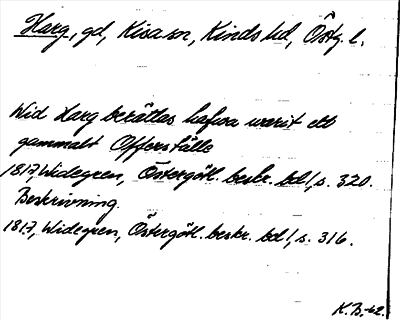 Harg, gd, Kisa sn, Kinds hd, Östg. l.
Wid Harg berättas hafwa warit ett
gammalt Offerställe
1817, Widegren, Östergötl. beskr. bd 1, s. 320.
Beskrivning.
1817, Widegren, Östergötl. beskr. bd 1, s. 316.
K.B.-42.